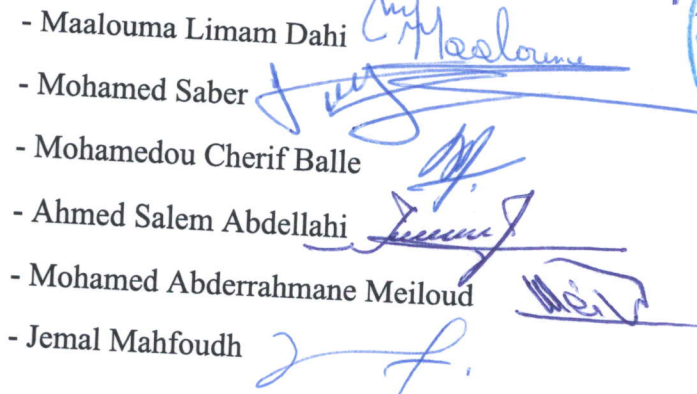 - Maalouma Limam Dahi Maalouma
- Mohamed Saber
- Mohamedou Cherif Balle
- Ahmed Salem Abdellahi
- Mohamed Abderrahmane Meiloud Meil
- Jemal Mahfoudh